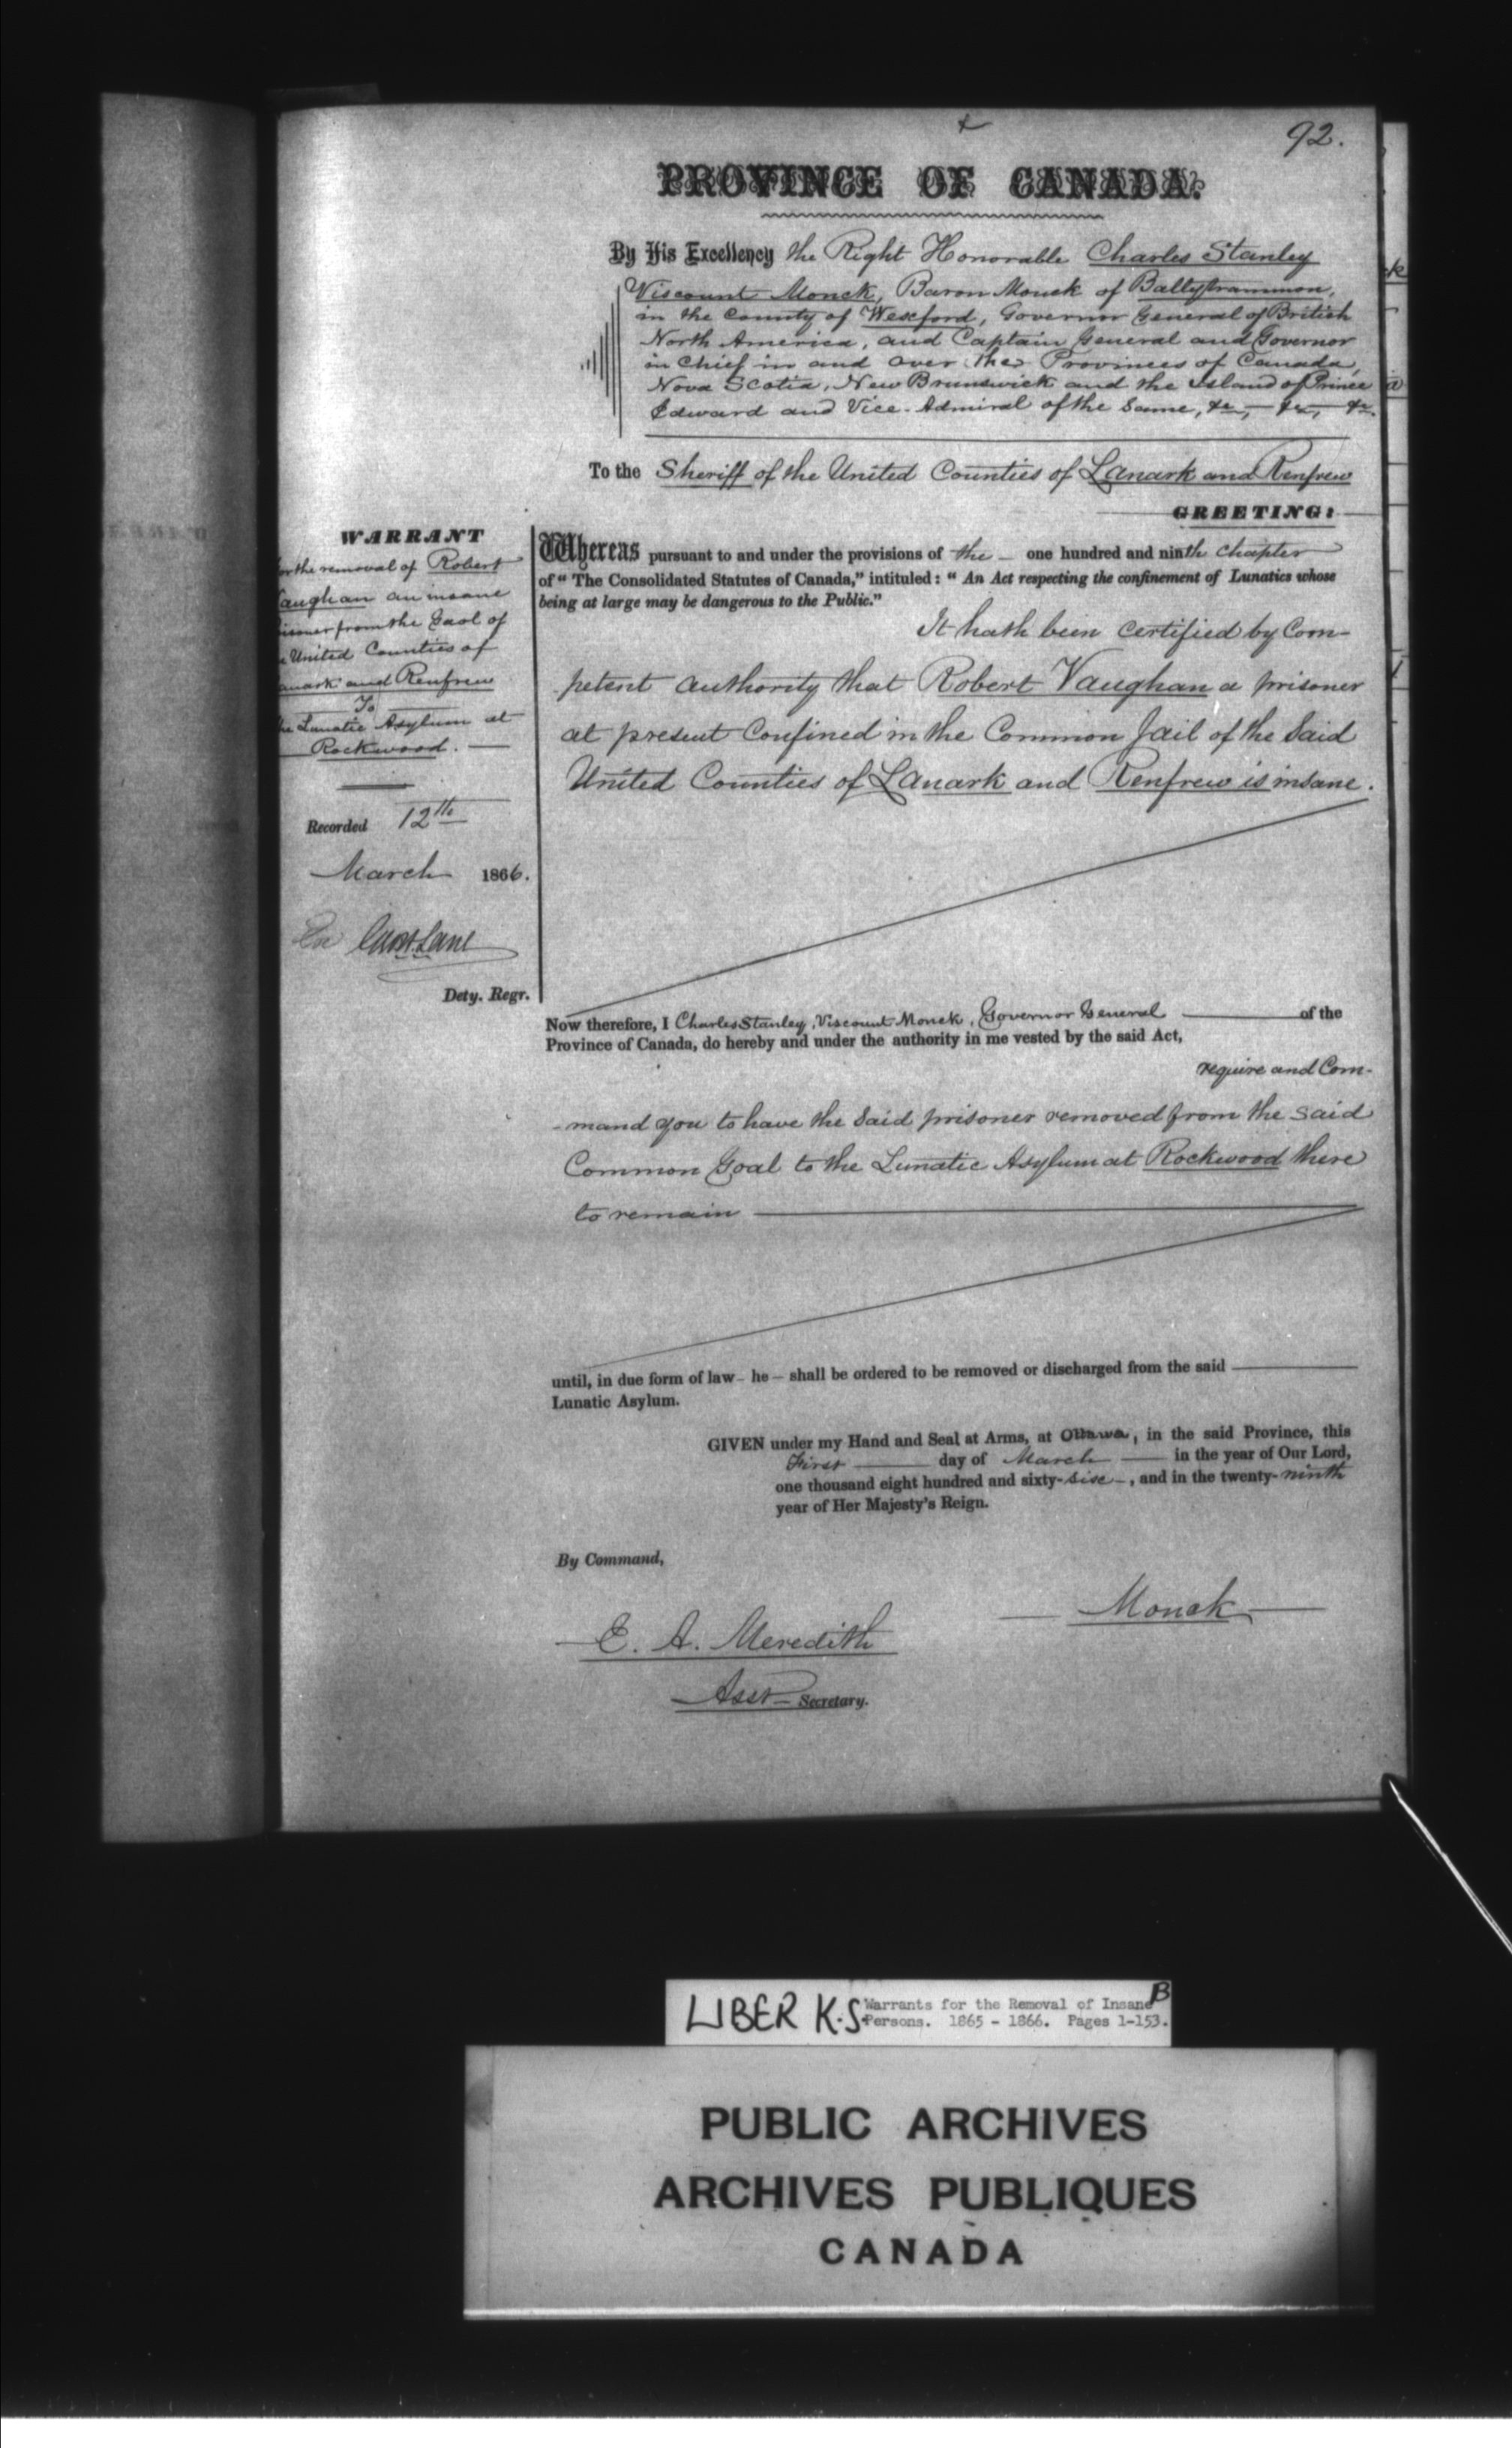 92.
PROVINCE OF CANADA.
By His Excellency the Right Honorable Charles Stanley
Viscount Monck, Baron Monck of Ballytrammon,
in the County of Wexford, Governor General of British
North America, and Captain General and Governor
in Chief in and over the Provinces of Canada,
Nova Scotia, New Brunswick and the Island of Prince
Edward and Vice-Admiral of the Same, &c, — &c, — &c.
To the Sheriff of the United Counties of Lanark and Renfrew
GREETING:
WARRANT
for the removal of Robert
Vaughan an insane
prisoner from the Gaol of
the United Counties of
Lanark and Renfrew
To
the Lunatic Asylum at
Rockwood. —
Recorded 12th
March 1866.
Lane
Dety. Regr.
Whereas pursuant to and under the provisions of the — one hundred and ninth chapter
of "The Consolidated Statutes of Canada," intituled: "An Act respecting the confinement of Lunatics whose
being at large may be dangerous to the Public."
It hath been certified by Com-
petent authority that Robert Vaughan a prisoner
at present Confined in the Common Jail of the Said
United Counties of Lanark and Renfrew is insane.
Now therefore, I Charles Stanley, Viscount Monck, Governor General of the
Province of Canada, do hereby and under the authority in me vested by the said Act,
require and Com-
-mand you to have the Said prisoner removed from the Said
Common Goal to the Lunatic Asylum at Rockwood there
to remain
until, in due form of law – he – shall be ordered to be removed or discharged from the said
Lunatic Asylum.
GIVEN under my Hand and Seal at Arms, at Ottawa, in the said Province, this
First day of March in the year of Our Lord,
one thousand eight hundred and sixty-six –, and in the twenty-ninth
year of Her Majesty's Reign.
By Command,
Monck
E. A. Meredith
Asst – Secretary.
LIBER K.S. Warrants for the Removal of Insane B
Persons. 1865 - 1866. Pages 1-153.
PUBLIC ARCHIVES
ARCHIVES PUBLIQUES
CANADA